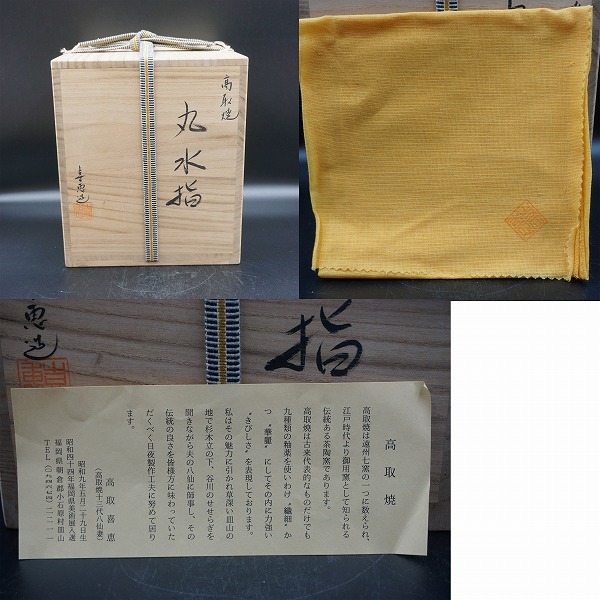 高取焼
丸水指
喜恵造
恵造
指
高取焼
高取焼は遠州七窯の一つに数えられ、
江戸時代より御用窯として知られる
伝統ある茶陶窯であります。
高取焼は古来代表的なものだけでも
九種類の釉薬を使いわけ〝繊細〟か
つ〝華麗〟にしてその内に力強い
〝きびしさ〟を表現しております。
私はその魅力に引かれ草深い皿山の
地で杉木立の下、谷川のせせらぎを
聞きながら夫の八仙に師事し、その
伝統の良さを皆様方に味わっていた
だくべく日夜製作工夫に努めて居り
ます。
高取喜恵
(高取焼十三代八仙妻)
昭和九年五月二十九日生
昭和四十四年福岡県美術展入選
福岡県朝倉郡小石原村皿山